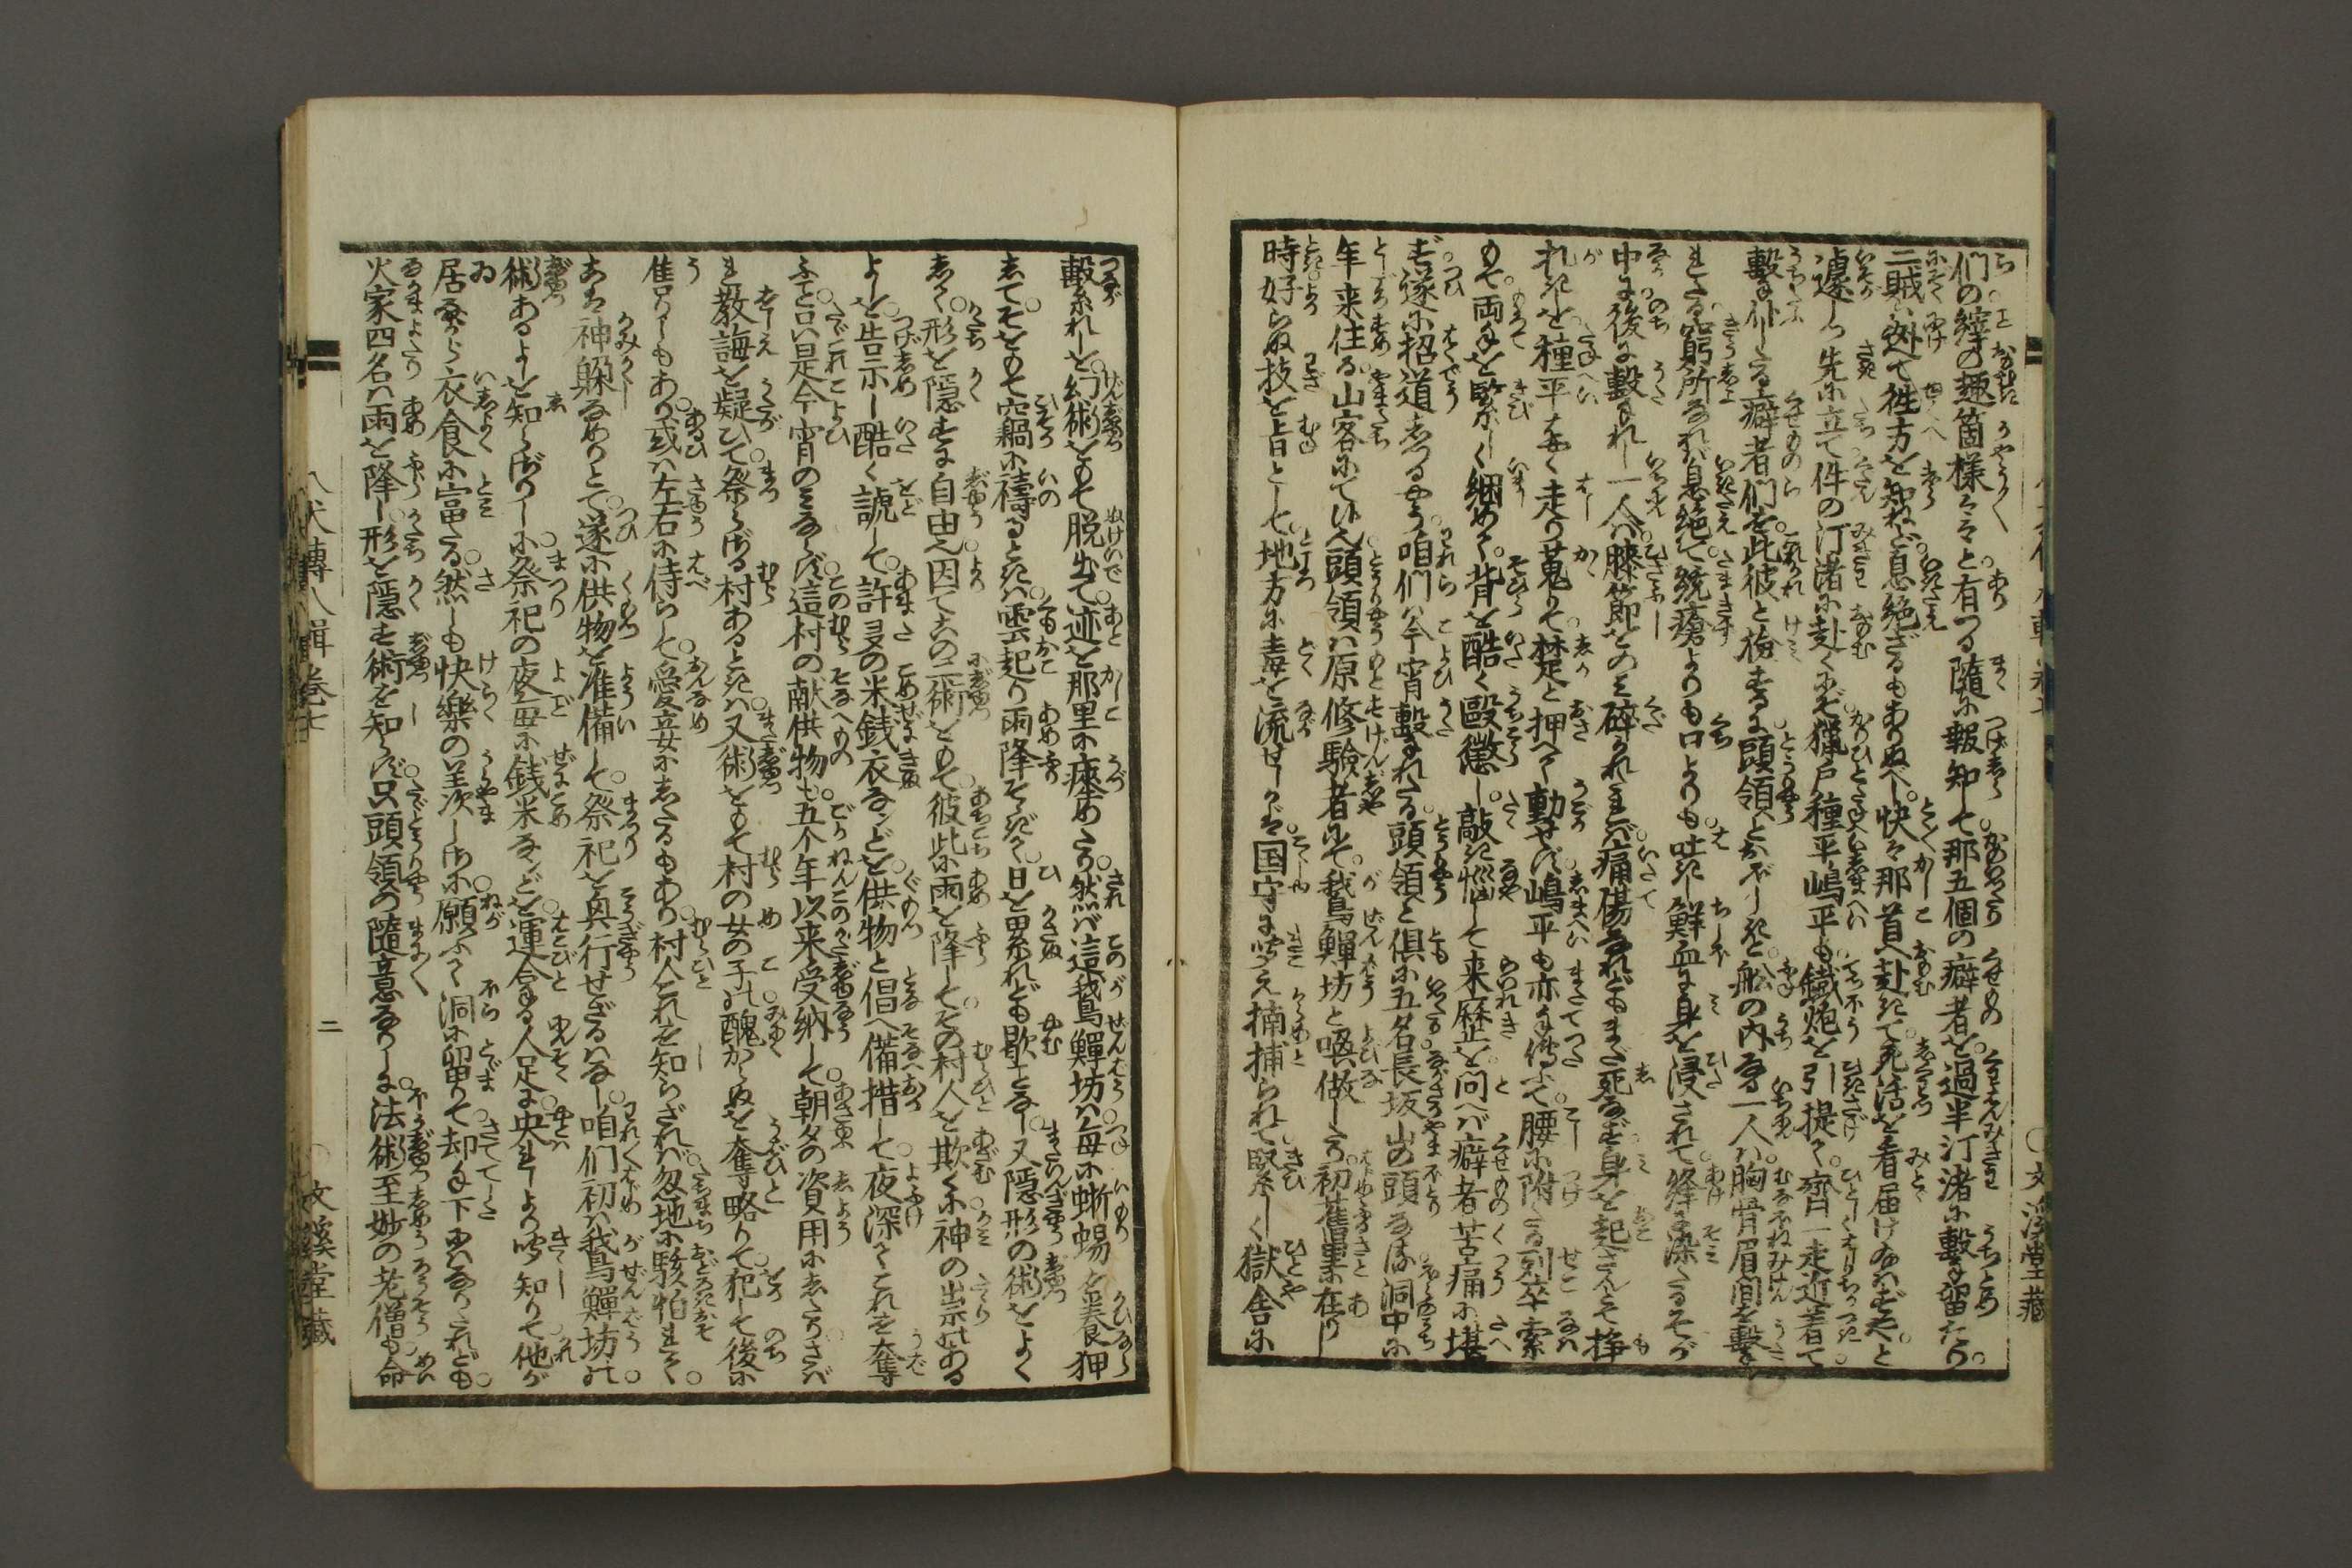 们の縡の趣箇様々々と有つる随に報知して那五個の癖者を過半汀渚に撃留たり。
二賊は外て徃方を知ねど息絶ざるもありぬべし快々那首へ赴きて死活を看届け給はずやと
遽しつ先に立て件の汀渚に赴く程に猟戸種平嶋平も鐵炮を引提て齊一走近着て
撃仆しゝる癖者們を此彼と撿するに頭領とおぼしきと舩の内なる一人は胸骨眉間を撃
れたる窮所なれば息絶て銃瘡よりも口よりも吐き鮮血に身を浸されて絳に染たるそが
中に後に撃れし一人は膝節をのみ碎かれたれば痛傷なれどもまだ死なず身を起さんとて挣
れきを種平はやく走り蒐りて楚と押へて動せず嶋平も亦手傳ふて腰に附たる列卒索
もて両手を緊しく綑めて背を酷く毆懲し敲き惱して来歴を問へば癖者苦痛に堪
ず遂に招道するやう咱們は今宵撃れたる頭領と倶に五名長坂山の頭なる洞中に
年来住る山客にて候へ頭領は原修驗者にて我鳥鱓坊と喚做したり初舊里に在りし
時好らぬ技を旨として地方に毒を流せしかば国守に聞え捕捕られて緊しく獄舎に
繋れしを幻術をもて脱出て迹を那里に瘗めたり然ば這我鳥鱓坊は毎に蜥蜴を養狎
してそをもて窃竊に禱るときは雲起り雨降そゝぎて日を累れども歇ことなし又隠形の術をよく
して形を隠すに自由也因てその二術をもて彼此に雨を降してその村人を欺くに神の出崇ある
よしを告示し酷く諕して許多の米銭衣なンどを供物と倡へ備措して夜深てこれを奪
ふこと只是今宵のみならず這村の献供物も五个年以来受納して朝夕の資用にしたりさば
れ教誨を疑ひて祭らざる村あるときは又術をもて村の女の子の醜からぬを奪略りて犯して後に
售りしもあり或は左右に侍らして愛妾にしたるもあり村人これを知らざれば忽地に駭怕れて
あは神躱なめりとて遂に供物を准備して祭祀を興行せざるはなし咱們初は我鳥鱓坊の
術あるよしを知らざりしに祭祀の夜毎に銭米なンどを運する人足に央れしより听知りて他が
居ながら衣食に富たる然しも快樂の羨しさに願ふて洞に留りて却手下になりたれども
火家四名は雨を降し形を隠す術を知らず只頭領の隨意なりしに法術至妙の老僧も命
八犬傳八輯巻七
二
文溪堂藏
文溪堂藏